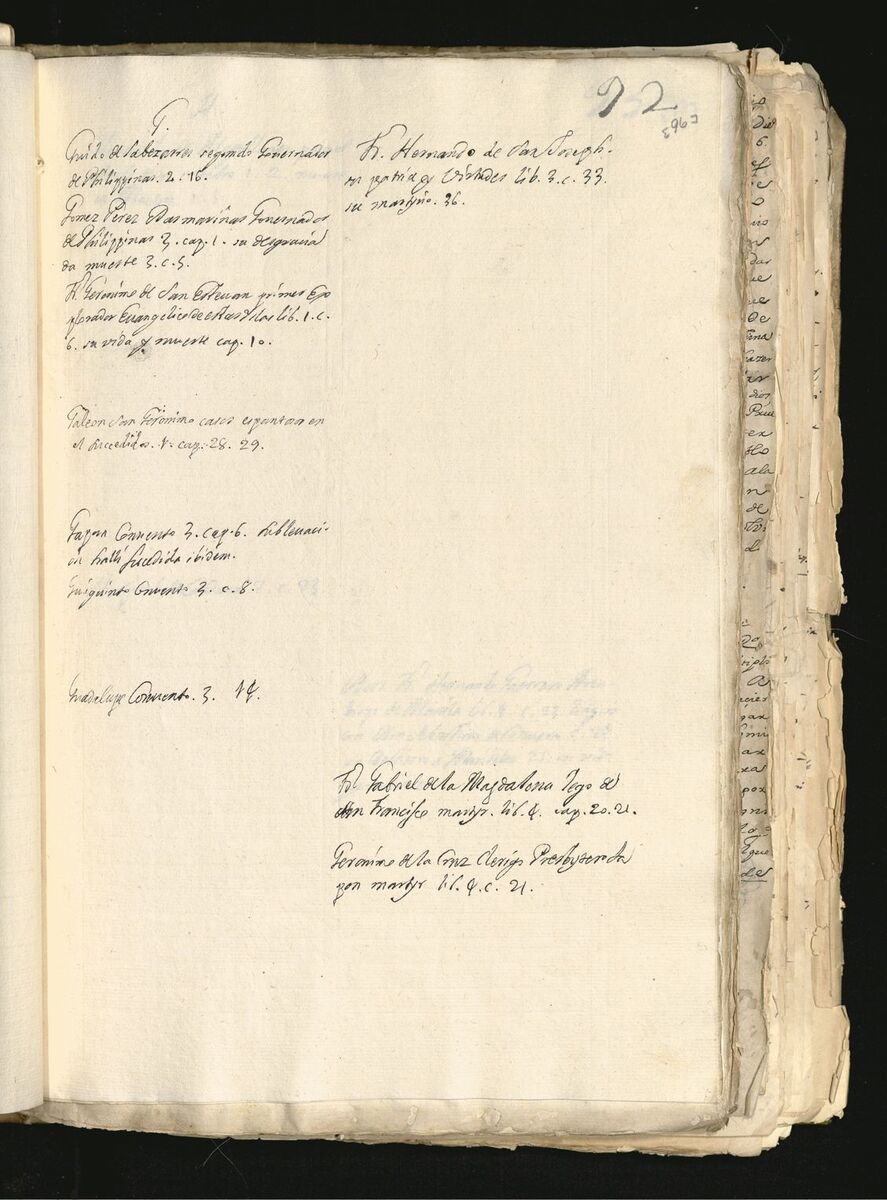 92
G.
Guido de Labezarres segundo Governador
de Philippinas. 2. 16.
Gomez Perez Dasmariñas Governador
de Philippinas 3. cap. 1. su desgracia
da muerte 3. c. 5.
Fr. Geronimo de San Estevan primer Exp
plorador Evangelico de estas Islas lib. 1. c.
6. su vida y muerte cap. 10.
Galeon San Geronimo casos espantosos en
el succedidos. 1. cap. 28. 29.
Gapan Convento 3. cap. 6. sublevaci-
on succedida ibidem.
Guiguinto Convento 3. c. 8.
Guadalupe Convento. 3. 14.
Fr. Hernando de San Joseph.
su patria y virtudes lib. 3. c. 33.
su martyrio. 36.
Fr. Gabriel de la Magdalena lego de
San Francisco martyr. lib. 4. cap. 20. 21.
Geronimo de la Cruz clerigo Presbytero Ja
pon martyr lib. 4. c. 21.